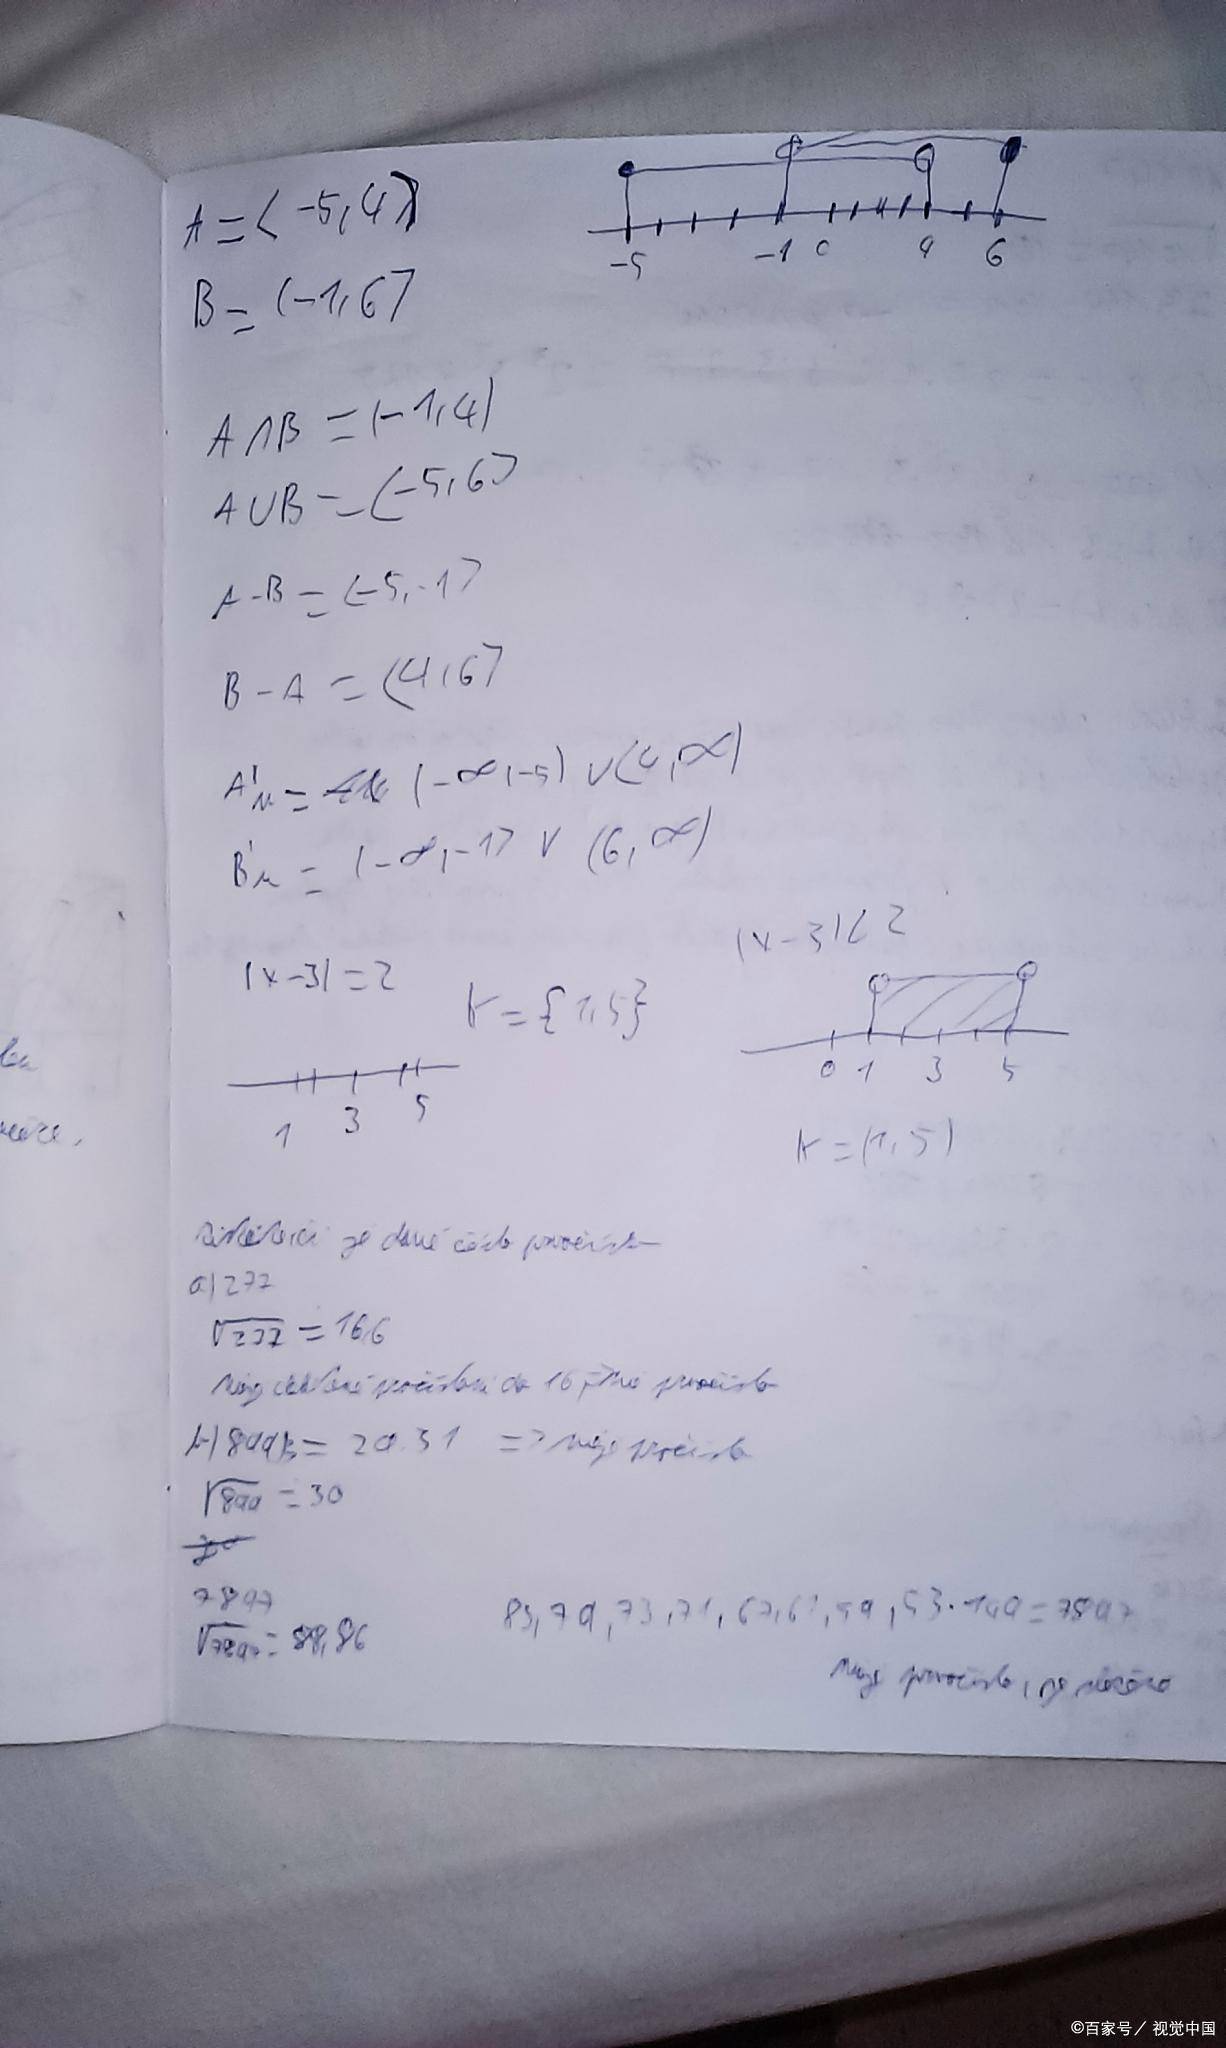 A = ⟨-5,4)
B = (-1,6⟩
-5 -1 0 4 6
A∩B = (-1,4)
A∪B = ⟨-5,6⟩
A-B = ⟨-5,-1⟩
B-A = ⟨4,6⟩
A' = (-∞,-5) ∪ ⟨4,∞)
B' = (-∞,-1⟩ ∪ (6,∞)
|x-3| = 2
K = {1,5}
1 3 5
|x-3| < 2
0 1 3 5
K = (1,5)
je dané číslo prvočíslo
a) 277
√277 = 16,6
do 16 prvočíslo
b) 899 = 29.31 => není prvočíslo
√899 = 30
7897
√7897 = 88,86
83, 79, 73, 71, 67, 61, 59, 53·149 = 7897
není prvočíslo, je složené
©百家号/视觉中国